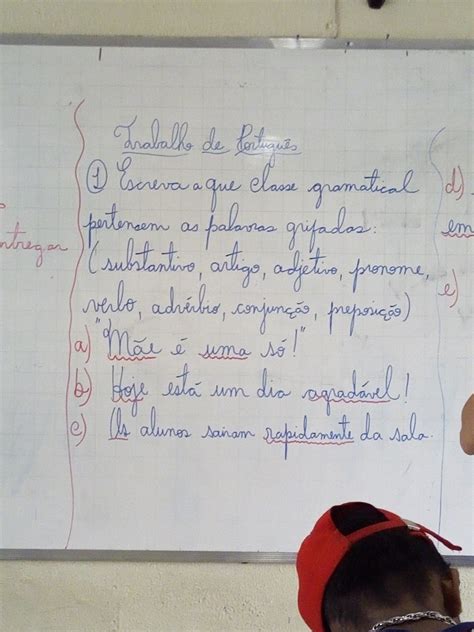 Trabalho de Português
① Escreva a que classe gramatical
pertensem as palavras grifadas:
(substantivo, artigo, adjetivo, pronome,
verbo, advérbio, conjunção, preposição)
a) "Mãe é uma só!"
b) Hoje está um dia agradável!
c) Os alunos sairam rapidamente da sala.
ntregar
d)
em
e)